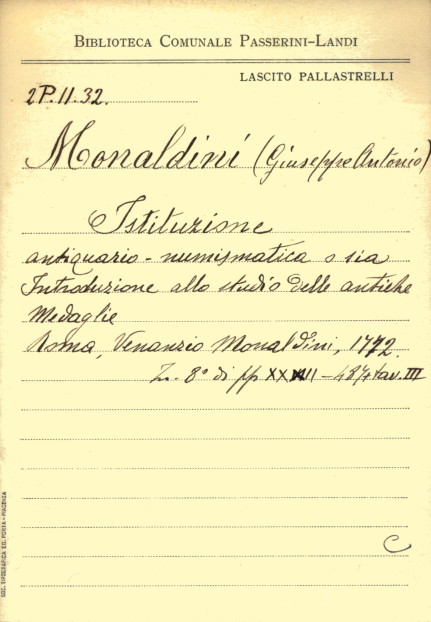 BIBLIOTECA COMUNALE PASSERINI-LANDI
LASCITO PALLASTRELLI
2P.II.32.
Monaldini (Giuseppe Antonio)
Istituzione
antiquario-numismatica o sia
Introduzione allo studio delle antiche
Medaglie
Roma, Venanzio Monaldini, 1772.
8° di pp
tav. III
C